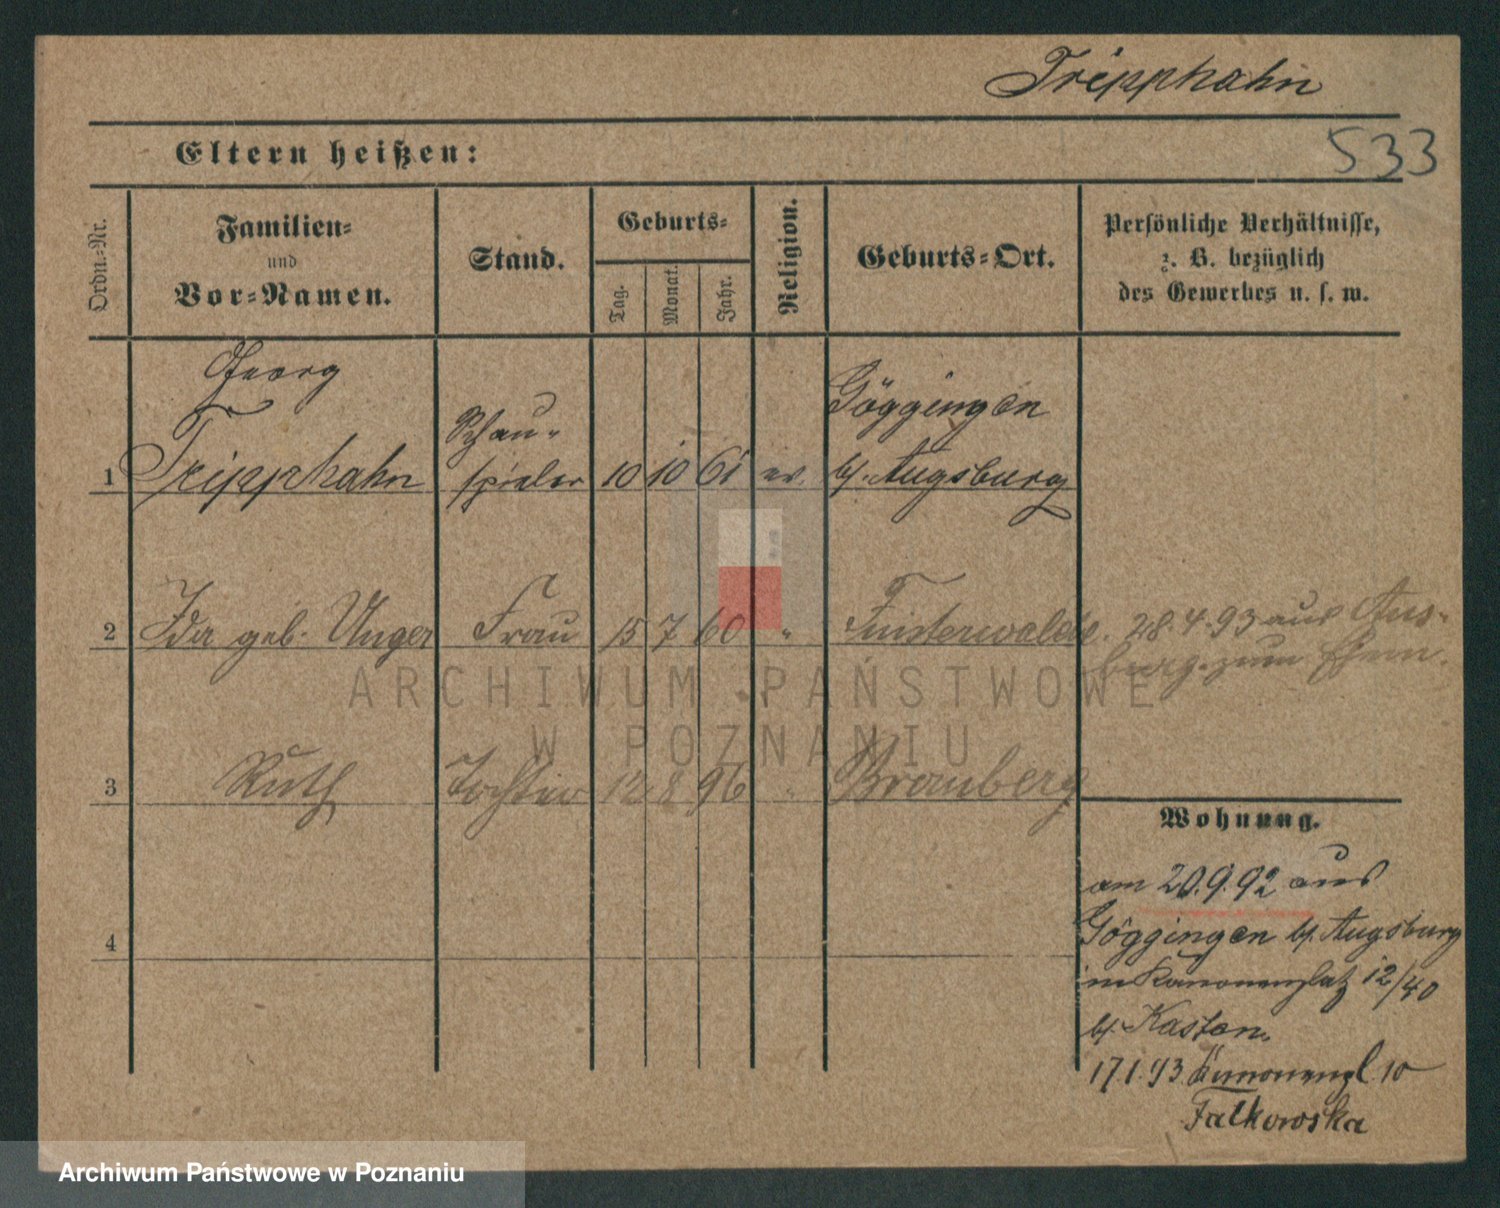 Tripphahn
533
Eltern heißen:
Ordn.-Nr.
Familien-
und
Vor-Namen.
Stand.
Geburts-
Tag.
Monat.
Jahr.
Religion.
Geburts-Ort.
Persönliche Verhältnisse,
z. B. bezüglich
des Gewerbes u. s. w.
Georg
Tripphahn
Schau-
spieler
1
10 10 61 ev.
Göggingen
b/. Augsburg
2 Ida geb. Unger Frau 15 7 60 " Finsterwalde.
28.4.93 aus Aus-
burg zum Ehem.
3 Ruth Tochter 12 8 96 " Bromberg
4
Wohnung.
am 20.9.92 aus
Göggingen b/. Augsburg
in Kanonenplatz 12/40
b/. Kaston.
17.1.93 Kanonenpl 10
Falkowska
ARCHIWUM PAŃSTWOWE
W POZNANIU
Archiwum Państwowe w Poznaniu